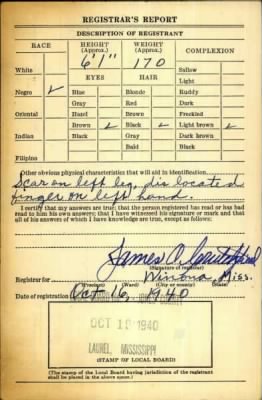 REGISTRAR'S REPORT
DESCRIPTION OF REGISTRANT
RACE HEIGHT (Approx.) WEIGHT (Approx.) COMPLEXION
White 6'1" 170 Sallow
EYES HAIR Light
Negro ✓ Blue Blonde Ruddy
Gray Red Dark
Oriental Hazel Brown Freckled
Brown ✓ Black ✓ Light brown ✓
Indian Black Gray Dark brown
Bald Black
Filipino
Other obvious physical characteristics that will aid in identification
Scar on left leg, dis located
finger on left hand.
I certify that my answers are true; that the person registered has read or has had
read to him his own answers; that I have witnessed his signature or mark and that
all of his answers of which I have knowledge are true, except as follows:
James A.
(Signature of registrar)
Registrar for Winona, Miss.
(Precinct) (Ward) (City or county) (State)
Date of registration Oct 16, 1940
OCT 1 1940
LAUREL, MISSISSIPPI
(STAMP OF LOCAL BOARD)
(The stamp of the Local Board having jurisdiction of the registrant
shall be placed in the above space.)